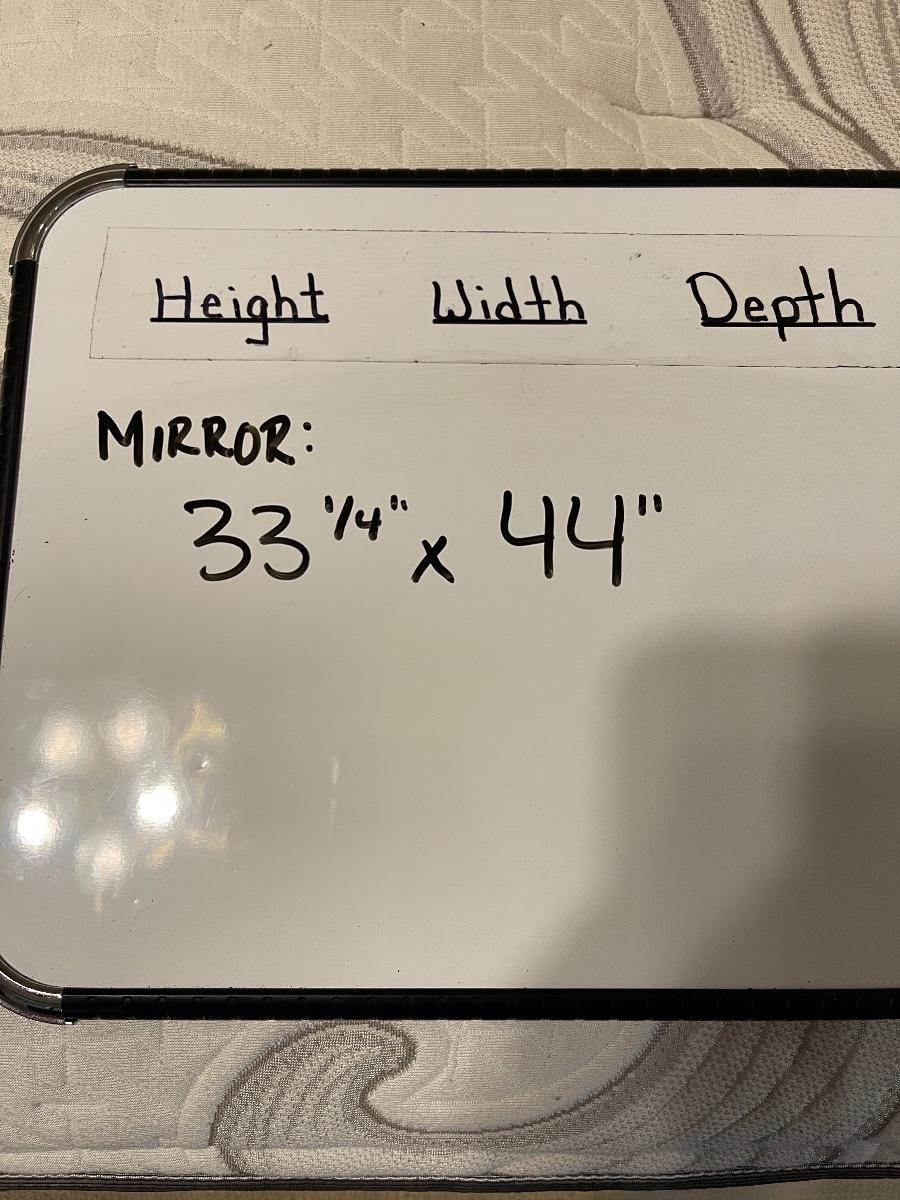 Height Width Depth
MIRROR:
33 1/4" x 44"